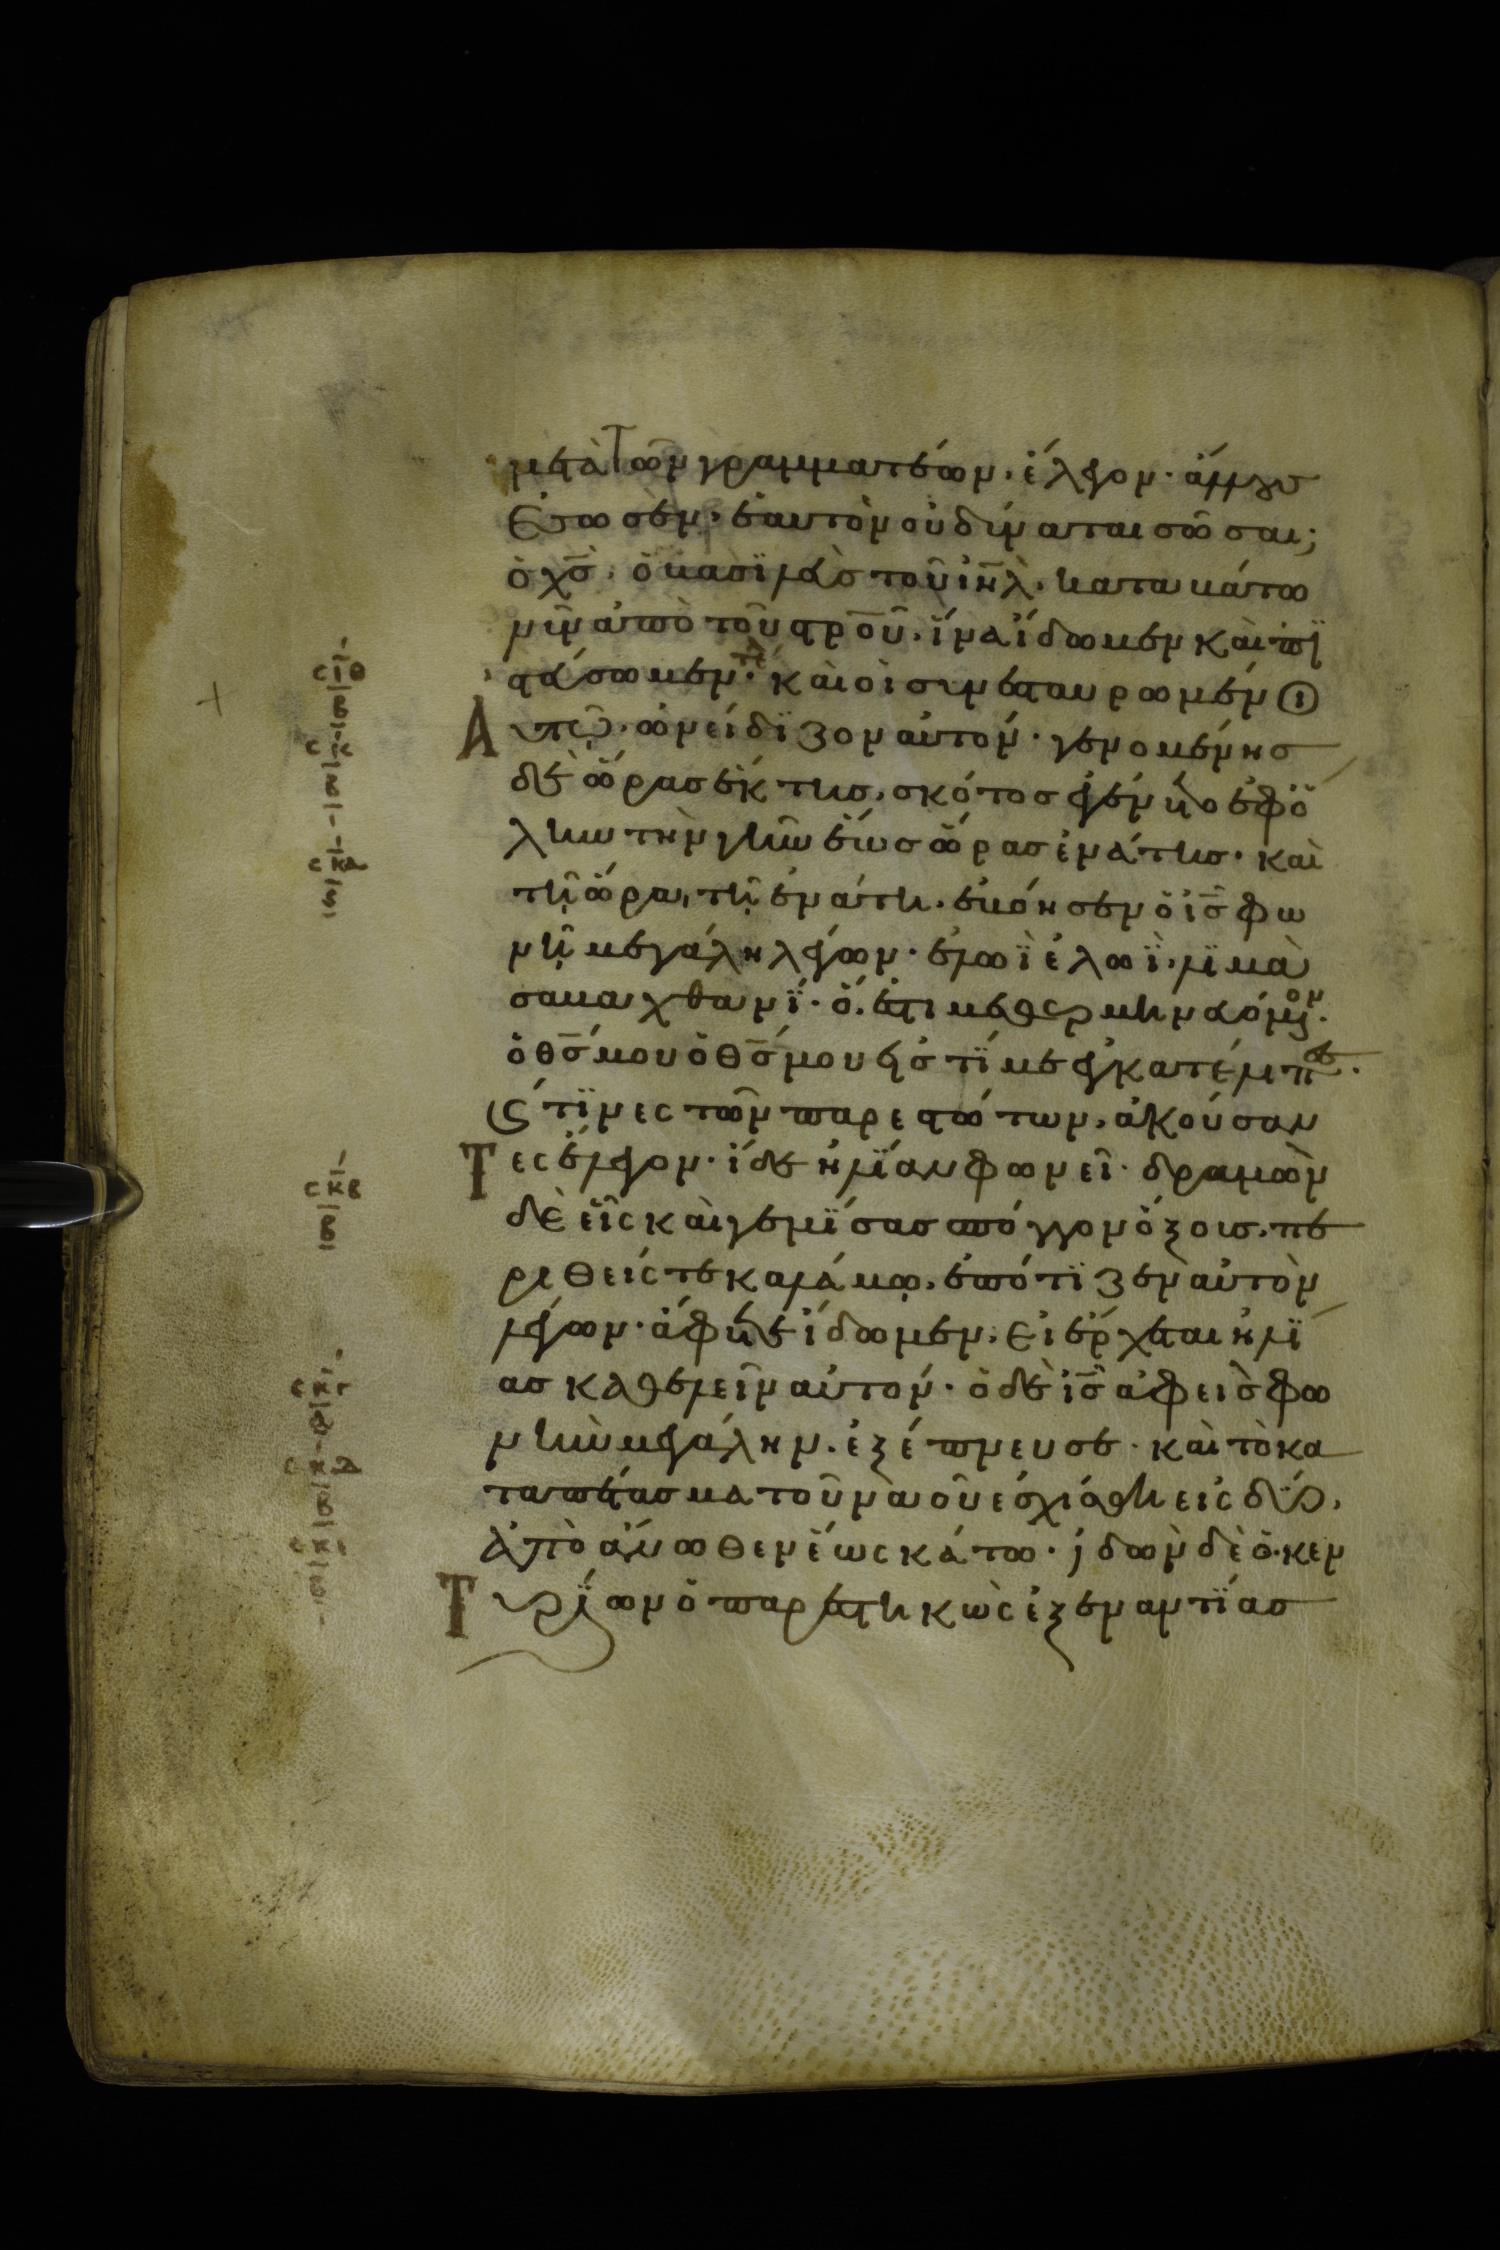 μετὰ τῶν γραμματέων· ἔλεγον· ἄλλους
ἔσωσεν· ἑαυτὸν οὐ δύναται σῶσαι;
ὁ χ̅ς̅· ὁ βασιλεὺς τοῦ ι̅η̅λ̅· καταβάτω
νῦν ἀπὸ τοῦ σ̅τ̅ρ̅ο̅ῦ̅· ἵνα ἴδωμεν καὶ πι
στεύσωμεν· καὶ οἱ συνεσταυρωμένοι
αυτῶ· ὠνείδιζον αὐτόν· γενομένης
δὲ ὥρας ἕκτης· σκότος ἐγένετο ἐφ ὅ
λην τὴν γῆν ἕως ὥρας ἐνάτης· καὶ
τῆ ὥρα τῆ ἐνάτη· ἐβόησεν ὁ ι̅ς̅ φω
νῆ μεγάλη λέγων· ἐλωῒ ἐλωῒ· λϊμὰ
σαβαχθανί· ὅ ἐστι μεθερμηνευόμενον·
ὁ θ̅ς̅ μου ὁ θ̅ς̅ μου εἰς τί με ἐγκατέλιπες·
καὶ τινες τῶν παρεστώτων· ἀκούσαν
τες ἔλεγον· ἴδε ἠλίαν φωνεῖ· δραμὼν
δὲ εἷς καὶ γεμίσας σπόγγον ὄξους· πε
ριθείς τε καλάμω· ἐπότιζεν αὐτὸν
λέγων· ἄφετε ἴδωμεν· εἰ ἔρχεται ἠλί
ας καθελεῖν αὐτόν· ὁ δὲ ι̅ς̅ ἀφεὶς φω
νὴν μεγάλην· ἐξέπνευσε· καὶ τὸ κα
ταπέτασμα τοῦ ναοῦ ἐσχίσθη εἰς δύο·
ἀπὸ ἄνωθεν ἕως κάτω· ἰδὼν δὲ ὁ κεν
τυρίων ὁ παρεστηκὼς ἐξ ἐναντίας
σιθ
β
σκ
β
σκα
ϛ
σκβ
β
σκγ
α
σκδ
β
σκε
β